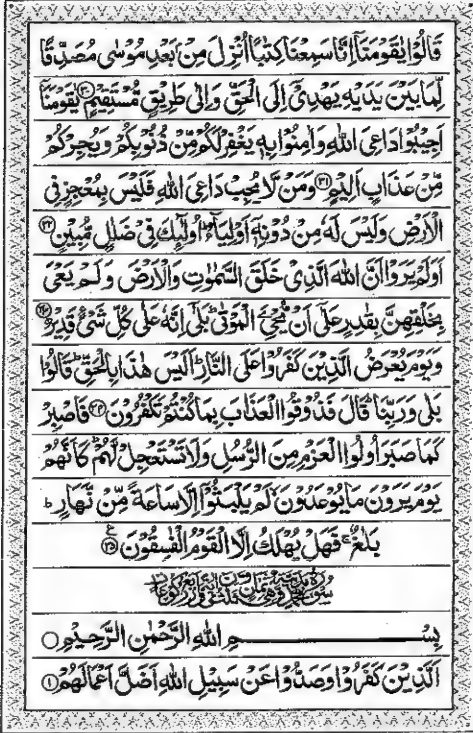 قَالُوۡا یٰقَوۡمَنَاۤ اِنَّا سَمِعۡنَا كِتٰبًا اُنۡزِلَ مِنۡۢ بَعۡدِ مُوۡسٰی مُصَدِّقًا
لِّمَا بَیۡنَ یَدَیۡهِ یَهۡدِیۡۤ اِلَی الۡحَقِّ وَاِلٰی طَرِیۡقٍ مُّسۡتَقِیۡمٍ ﴿۳۰﴾ یٰقَوۡمَنَاۤ
اَجِیۡبُوۡا دَاعِیَ اللّٰهِ وَاٰمِنُوۡا بِهٖ یَغۡفِرۡ لَكُمۡ مِّنۡ ذُنُوۡبِكُمۡ وَیُجِرۡكُمۡ
مِّنۡ عَذَابٍ اَلِیۡمٍ ﴿۳۱﴾ وَمَنۡ لَّا یُجِبۡ دَاعِیَ اللّٰهِ فَلَیۡسَ بِمُعۡجِزٍ فِی
الۡاَرۡضِ وَلَیۡسَ لَهٗ مِنۡ دُوۡنِهٖۤ اَوۡلِیَآءُ ؕ اُولٰٓئِكَ فِیۡ ضَلٰلٍ مُّبِیۡنٍ ﴿۳۲﴾
اَوَلَمۡ یَرَوۡا اَنَّ اللّٰهَ الَّذِیۡ خَلَقَ السَّمٰوٰتِ وَالۡاَرۡضَ وَلَمۡ یَعۡیَ
بِخَلۡقِهِنَّ بِقٰدِرٍ عَلٰۤی اَنۡ یُّحۡیِۦَ الۡمَوۡتٰی ؕ بَلٰۤی اِنَّهٗ عَلٰی كُلِّ شَیۡءٍ قَدِیۡرٌ ﴿۳۳﴾
وَیَوۡمَ یُعۡرَضُ الَّذِیۡنَ كَفَرُوۡا عَلَی النَّارِ ؕ اَلَیۡسَ هٰذَا بِالۡحَقِّ ؕ قَالُوۡا
بَلٰی وَرَبِّنَا ؕ قَالَ فَذُوۡقُوا الۡعَذَابَ بِمَا كُنۡتُمۡ تَكۡفُرُوۡنَ ﴿۳۴﴾ فَاصۡبِرۡ
كَمَا صَبَرَ اُولُوا الۡعَزۡمِ مِنَ الرُّسُلِ وَلَا تَسۡتَعۡجِلۡ لَّهُمۡ ؕ كَاَنَّهُمۡ
یَوۡمَ یَرَوۡنَ مَا یُوۡعَدُوۡنَ ۙ لَمۡ یَلۡبَثُوۡۤا اِلَّا سَاعَةً مِّنۡ نَّهَارٍ ؕ
بَلٰغٌ ۚ فَهَلۡ یُهۡلَكُ اِلَّا الۡقَوۡمُ الۡفٰسِقُوۡنَ ﴿۳۵﴾
بِسۡمِ اللّٰهِ الرَّحۡمٰنِ الرَّحِیۡمِ ○
اَلَّذِیۡنَ كَفَرُوۡا وَصَدُّوۡا عَنۡ سَبِیۡلِ اللّٰهِ اَضَلَّ اَعۡمَالَهُمۡ ﴿۱﴾